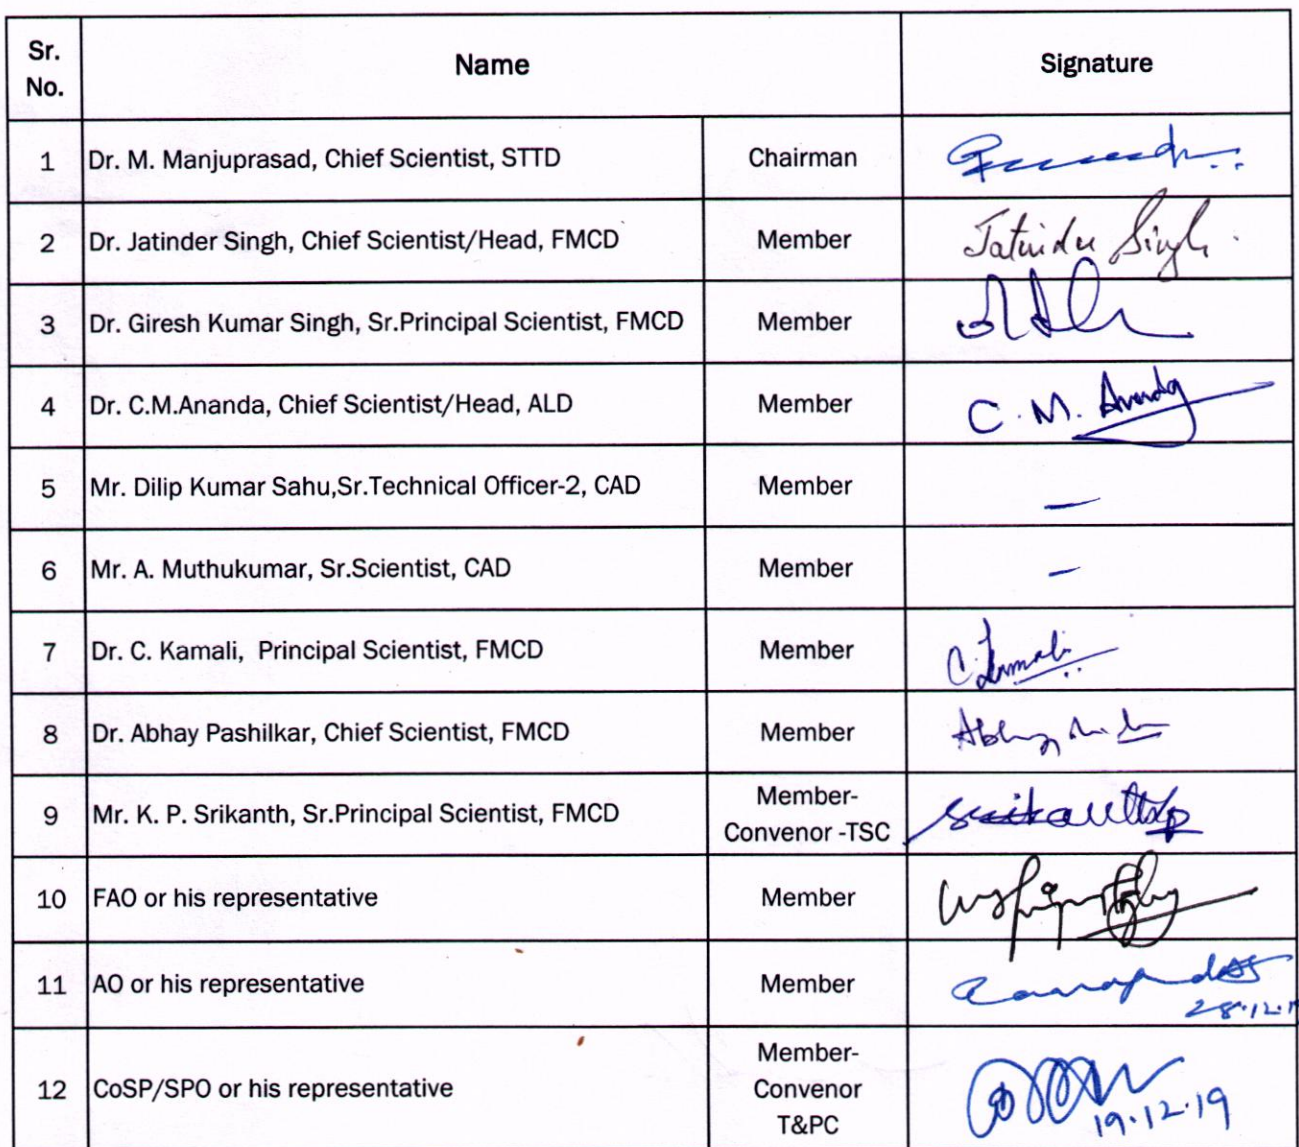 Sr. No. Name Signature
1 Dr. M. Manjuprasad, Chief Scientist, STTD Chairman
2 Dr. Jatinder Singh, Chief Scientist/Head, FMCD Member Jatinder Singh
3 Dr. Giresh Kumar Singh, Sr.Principal Scientist, FMCD Member
4 Dr. C.M.Ananda, Chief Scientist/Head, ALD Member C. M. Ananda
5 Mr. Dilip Kumar Sahu,Sr.Technical Officer-2, CAD Member –
6 Mr. A. Muthukumar, Sr.Scientist, CAD Member –
7 Dr. C. Kamali, Principal Scientist, FMCD Member C. Kamali
8 Dr. Abhay Pashilkar, Chief Scientist, FMCD Member
9 Mr. K. P. Srikanth, Sr.Principal Scientist, FMCD Member-
Convenor -TSC
10 FAO or his representative Member
11 AO or his representative Member
28.12.1
12 CoSP/SPO or his representative Member-
Convenor
T&PC
19.12.19